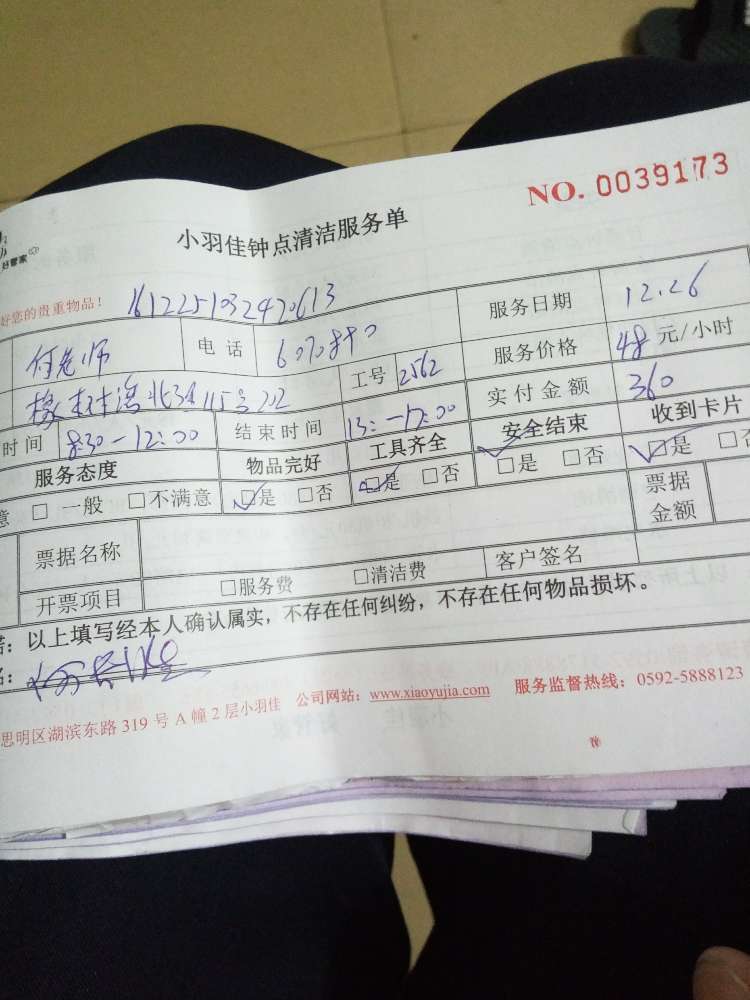 NO. 0039173
小羽佳钟点清洁服务单
好管家
好您的贵重物品！ 1612251032420613
何老师 电话 6070890 服务日期 12.26
北34 115号202 工号 2562 服务价格 48 元/小时
时间 8:30—12:00 结束时间 13:—17:00 实付金额 360
服务态度 物品完好 工具齐全 安全结束 收到卡片
意 □ 一般 □不满意 □是 □否 □是 □否 □是 □否 □是 □否
票据名称 票据金额
开票项目 □服务费 □清洁费 客户签名
诺：以上填写经本人确认属实，不存在任何纠纷，不存在任何物品损坏。
名：
思明区湖滨东路 319 号 A 幢 2 层小羽佳 公司网站：www.xiaoyujia.com 服务监督热线：0592-5888123